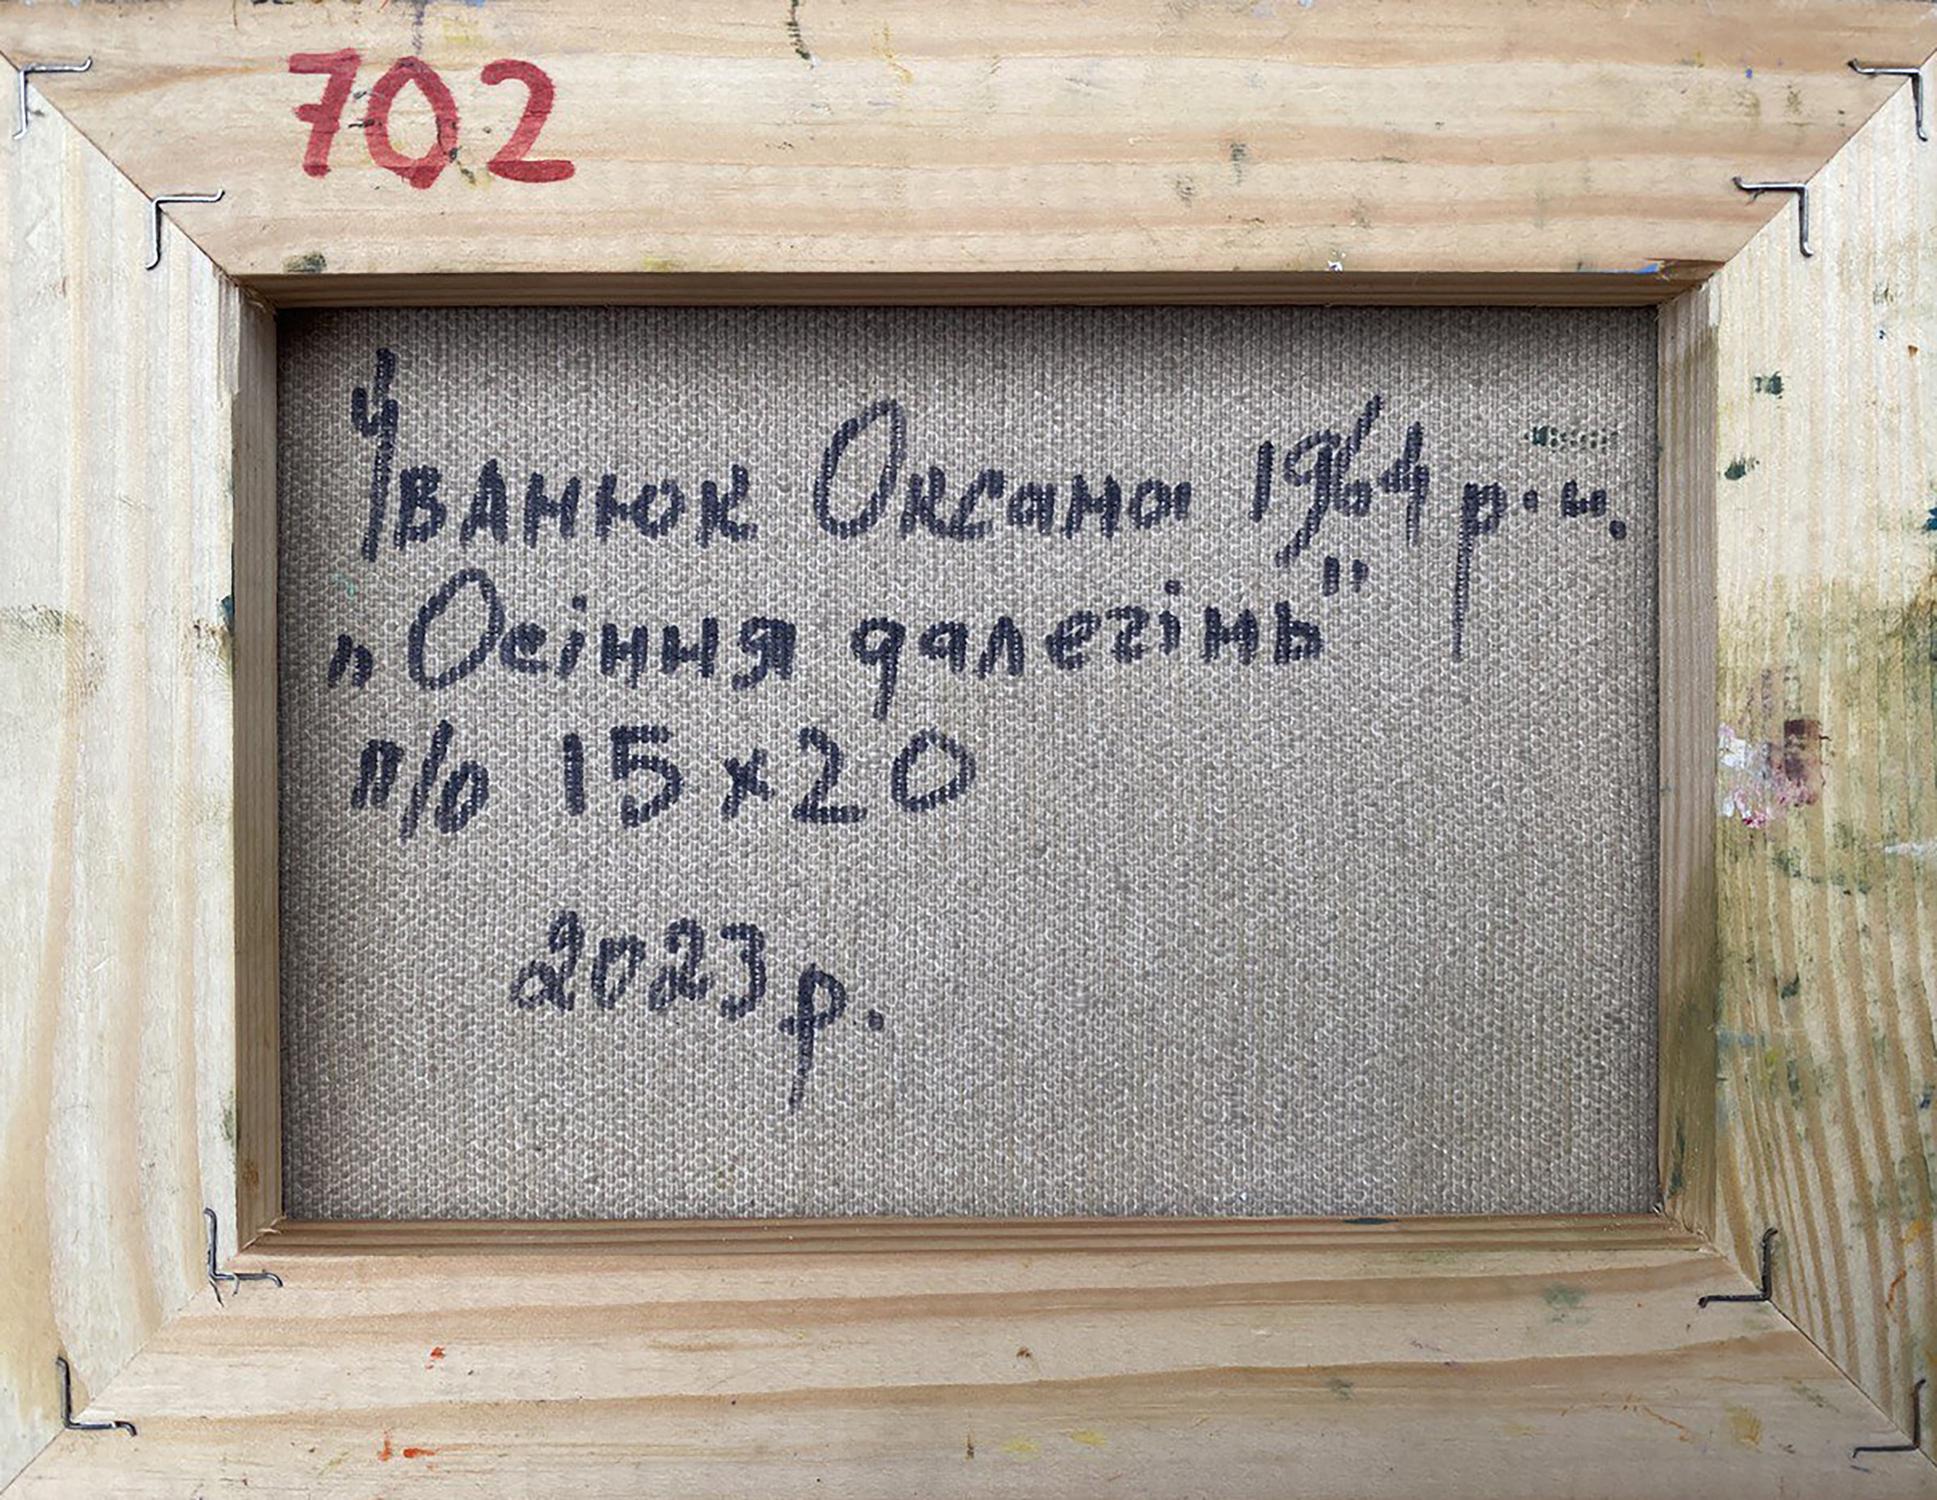 702
Іванюк Оксана 1964 р.н.
„Осіння далегінь"
п/о 15x20
2023 р.